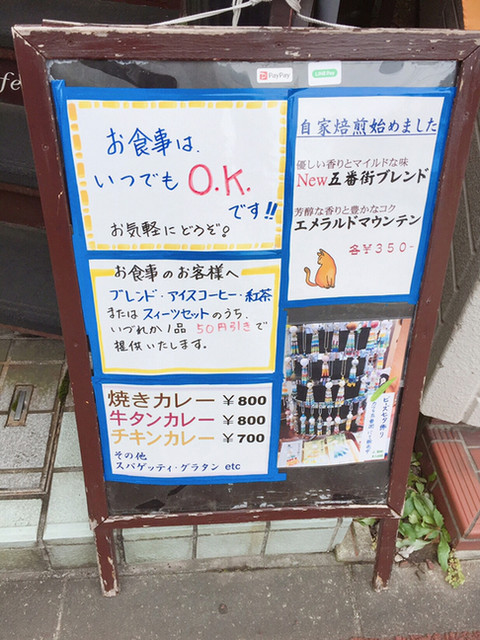 fe
PayPay
LINE Pay
お食事は、
いつでもO.K.
です!!
お気軽にどうぞ♪
お食事のお客様へ
ブレンド・アイスコーヒー・紅茶
または スィーツセットのうち、
いづれか1品 50円引きで
提供いたします。
焼きカレー ¥800
牛タンカレー ¥800
チキンカレー ¥700
その他
スパゲッティ・グラタン etc
自家焙煎始めました
優しい香りとマイルドな味
New五番街ブレンド
芳醇な香りと豊かなコク
エメラルドマウンテン
各¥350-